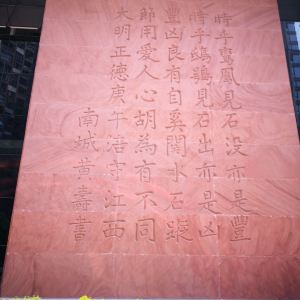 時乎鸞鳳見石没亦是豐
時乎鴟鶚見石出亦是凶
豐凶良有自奚關水石蹤
節用愛人心胡為有不同
大明正德庚午涪守江西
南城黃壽書